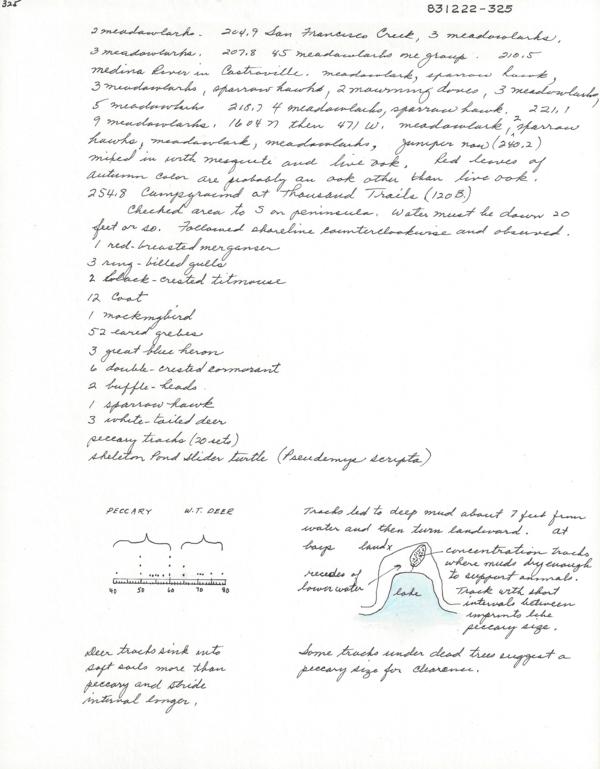 325
831222-325
2 meadowlarks. 204.9 San Francisco Creek, 3 meadowlarks,
3 meadowlarks. 207.8 45 meadowlarks one group. 210.5
medina River in Castroville. meadowlark, sparrow hawk,
3 meadowlarks, sparrow hawks, 2 mourning doves, 3 meadowlarks,
5 meadowlarks 218.7 4 meadowlarks, sparrow hawk. 221.1
9 meadowlarks. 1604 N then 471 W. meadowlark, 2 sparrow
hawks, meadowlark, meadowlarks, juniper now (240.2)
mixed in with mesquite and live oak. Red leaves of
autumn color are probably an oak other than live oak.
254.8 Campground at Thousand Trails (120B)
Checked area to S on peninsula. Water must be down 20
feet or so. Followed shoreline counterclockwise and observed.
1 red-breasted merganser
3 ring-billed gulls
2 black-crested titmouse
12 Coot
1 mockingbird
52 eared grebes
3 great blue heron
6 double-crested cormorant
2 buffle-heads.
1 sparrow-hawk
3 white-tailed deer
peccary tracks (20 sets)
skeleton Pond Slider turtle (Pseudemys scripta)
PECCARY W.T. DEER
40 50 60 70 80 90
Deer tracks sink into
soft soils more than
peccary and stride
interval longer.
Tracks led to deep mud about 7 feet from
water and then turn landward. At
bays land x
concentration tracks
where muds dry enough
to support animals.
recedes of
lower water
lake
Track with short
intervals between
imprints like
peccary size.
Some tracks under dead trees suggest a
peccary size for clearence.